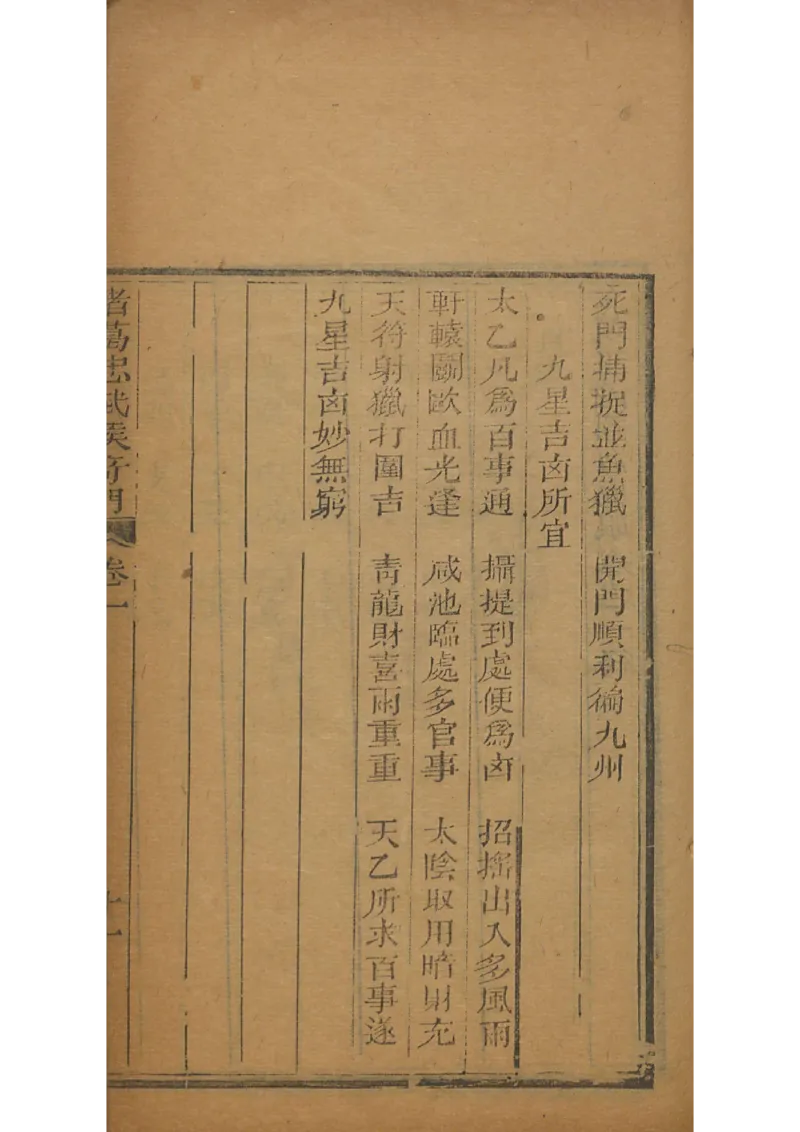 死門捕捉並魚獵　開門順利徧九州
九星吉卤所宜
太乙凡爲百事通　攝提到處便爲卤　招搖出入多風雨
軒轅鬭歐血光逢　咸池臨處多官事　太陰取用暗財充
天符射獵打圍吉　青龍財喜雨重重　天乙所求百事遂
九星吉卤妙無窮
諸葛忠武侯奇門　卷一　十一